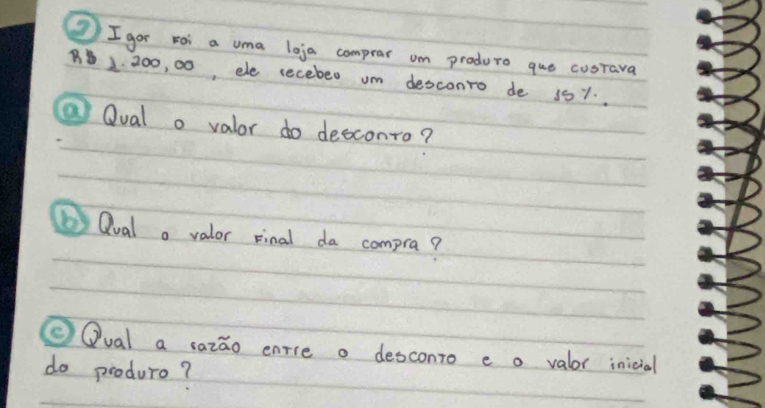 ② Igor foi a uma loja comprar um produto que custava
R$ 1.200,00, ele recebeu um desconto de 15%.
ⓐ Qual o valor do desconto?
ⓑ Qual o valor final da compra?
ⓒ Qual a razão entre o desconto e o valor inicial
do produto?